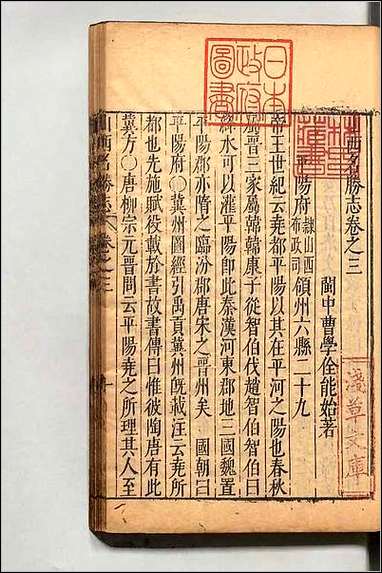 山西名勝志卷之三
閩中曹學佺能始著
平陽府 隸山西布政司 領州六縣二十九
帝王世紀云堯都平陽以其在平河之陽也春秋
屬晉三家屬韓韓康子從智伯伐趙智伯曰
絳水可以灌平陽即此秦漢河東郡地三國魏置
平陽郡亦隋之臨汾郡唐宋之晉州矣 國朝曰
平陽府〇冀州圖經引禹貢冀州旣載注云堯所
都也先施賦役載於書故書傳曰惟彼陶唐有此
冀方〇唐柳宗元晉問云平陽堯之所理其人至
山西名勝志 卷之三
日本政府圖書
淺草文庫